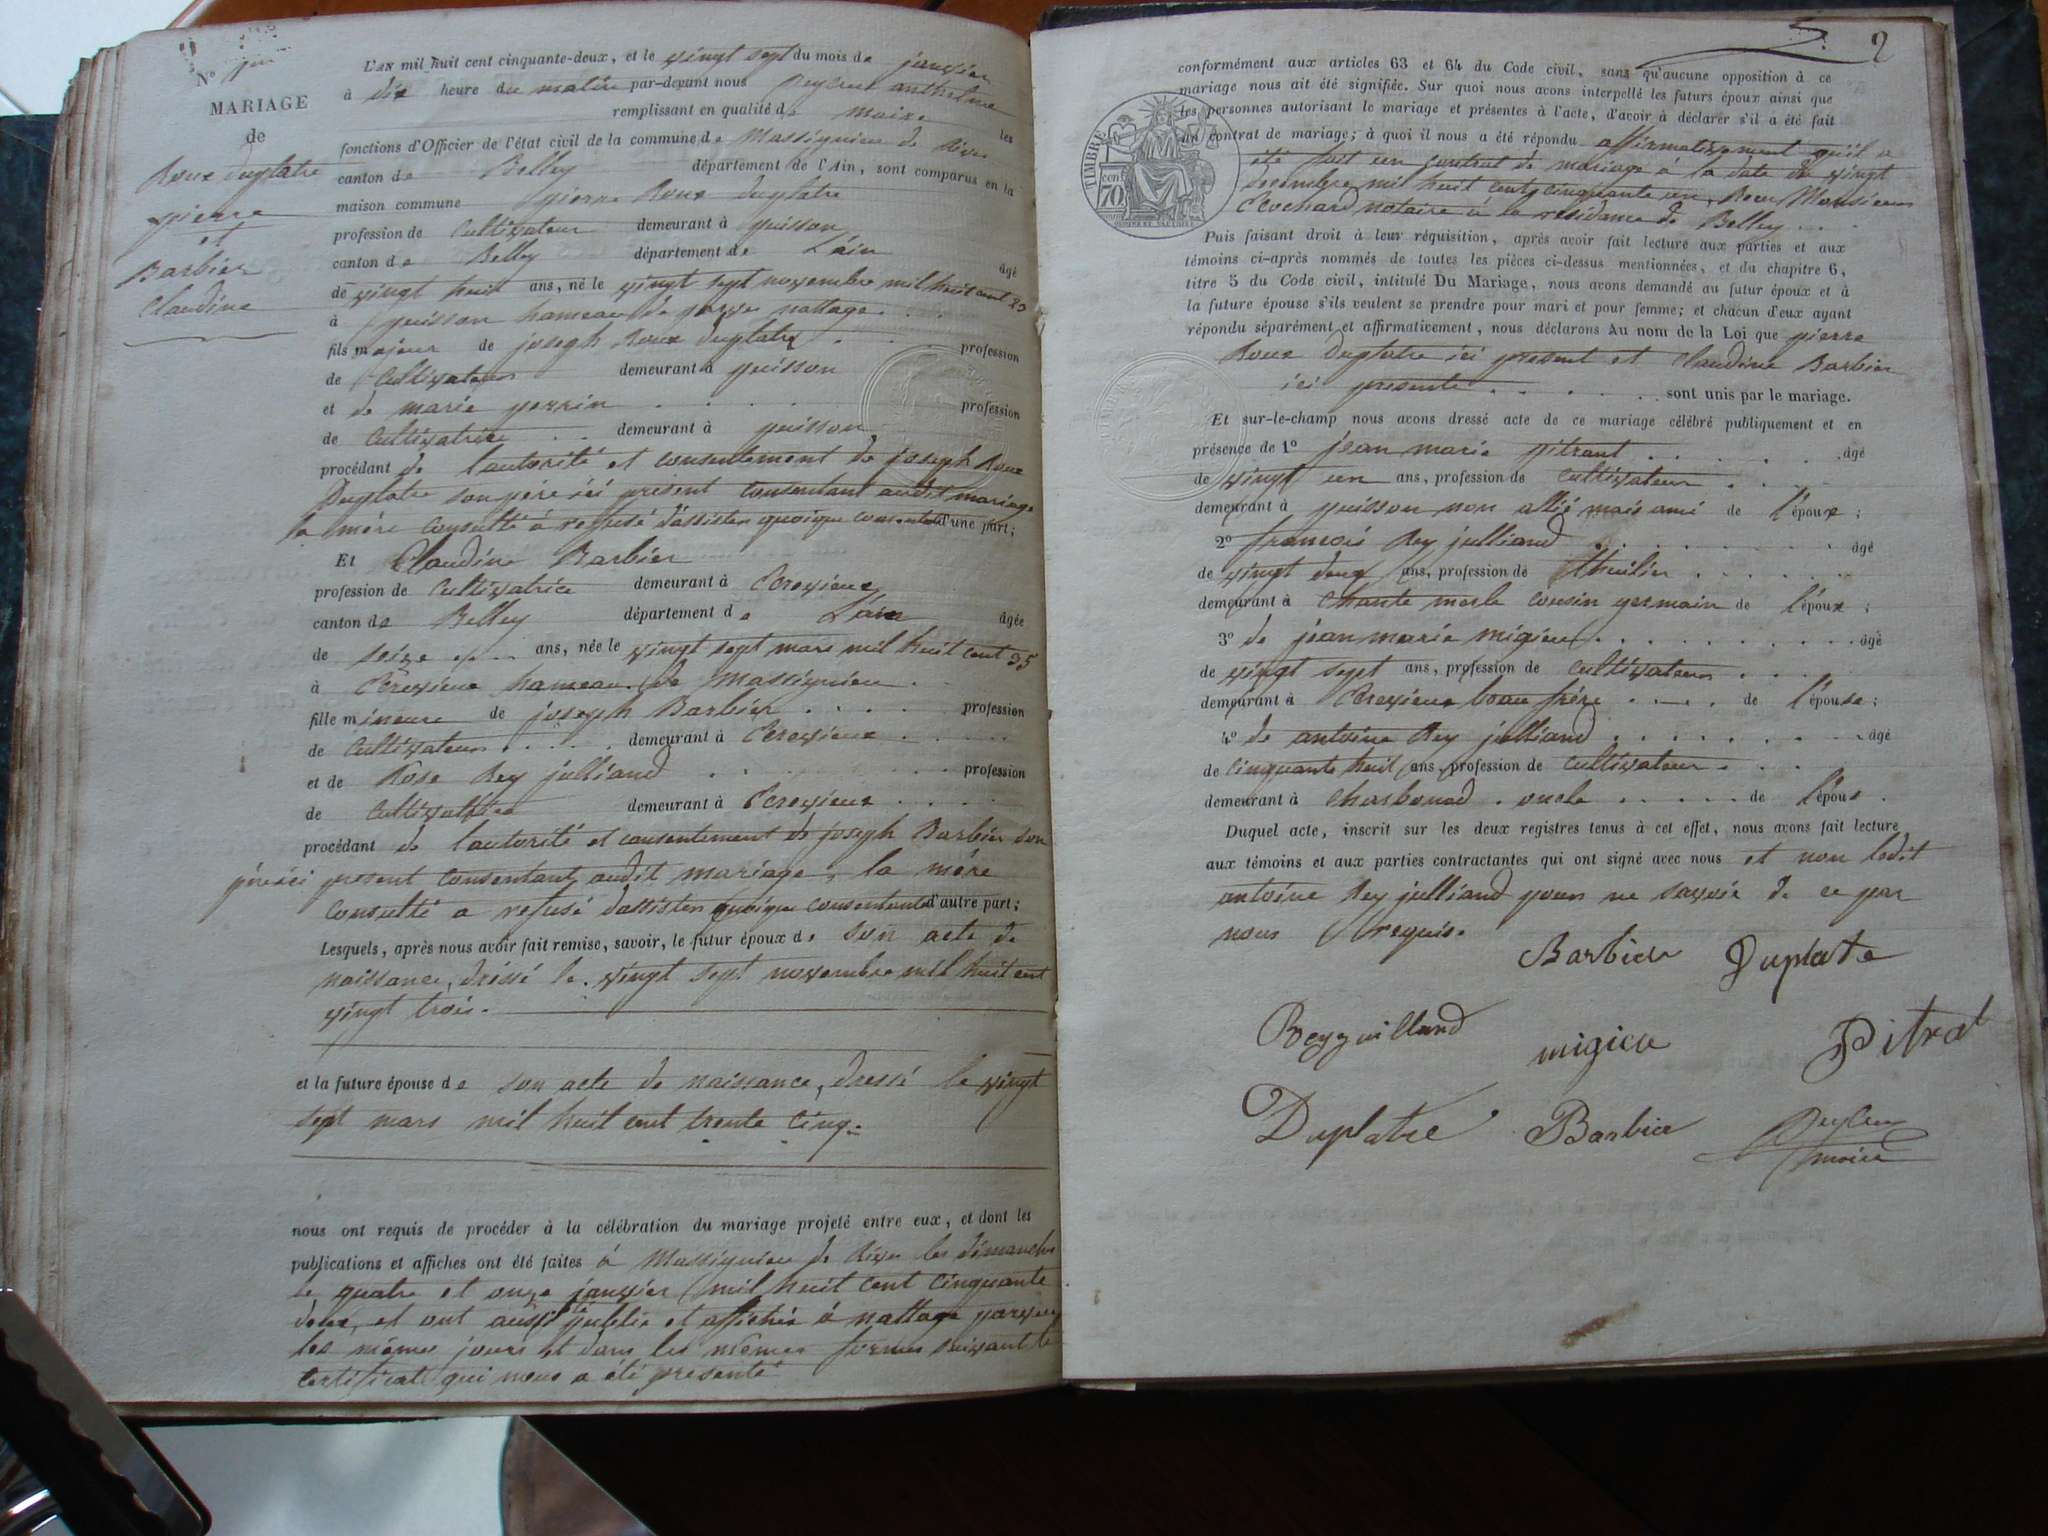 N° un
MARIAGE
de
Roux Duplatre
pierre
et
Barbier
Claudine
L'AN mil huit cent cinquante-deux, et le vingt sept du mois de janvier
à dix heure du matin par-devant nous anthelme
remplissant en qualité de maire les
fonctions d'Officier de l'état civil de la commune de Massignieu de Rives
canton de Belley département de l'Ain, sont comparus en la
maison commune pierre Roux Duplatre
profession de Cultivateur demeurant à
canton de Belley département de L'ain âgé
de vingt huit ans, né le vingt sept novembre mil huit cent 23
à hameau de nattage
fils majeur de joseph Roux Duplatre profession
de Cultivateur demeurant à
et de marie perrin profession
de Cultivatrice demeurant à
procédant de l'autorité et consentement de joseph Roux
Duplatre son père ici present consentant audit mariage
la mère consulté à refusé d'assister quoique consentant d'une part;
Et Claudine Barbier
profession de Cultivatrice demeurant à
canton de Belley département de L'ain âgée
de seize ans, née le vingt sept mars mil huit cent 35
à hameau de Massignieu
fille mineure de joseph Barbier profession
de Cultivateur demeurant à
et de Rose Rey julliand profession
de Cultivatrice demeurant à
procédant de l'autorité et consentement de joseph Barbier son
père ici present consentant audit mariage, la mère
Consulté a refusé d'assister quoique consentante d'autre part;
Lesquels, après nous avoir fait remise, savoir, le futur époux de son acte de
naissance, dréssé le vingt sept novembre mil huit cent
vingt trois.
et la future épouse de son acte de naissance, dressé le vingt
sept mars mil huit cent trente cinq.
nous ont requis de procéder à la célébration du mariage projeté entre eux, et dont les
publications et affiches ont été faites à Massignieu de Rives les dimanches
le quatre et onze janvier mil huit cent cinquante
deux, et ont aussi été publié et affichés à nattage
les mêmes jours et dans les mêmes formes suivant le
certificat qui nous a été présenté
2
conformément aux articles 63 et 64 du Code civil, sans qu'aucune opposition à ce
mariage nous ait été signifiée. Sur quoi nous avons interpellé les futurs époux ainsi que
les personnes autorisant le mariage et présentes à l'acte, d'avoir à déclarer s'il a été fait
un contrat de mariage; à quoi il nous a été répondu affirmativement qu'il a
été fait un contrat de mariage à la date du vingt
decembre mil huit cent cinquante un, Monsieur
notaire à la résidence de Belley
TIMBRE
70 cent
Puis faisant droit à leur réquisition, après avoir fait lecture aux parties et aux
témoins ci-après nommés de toutes les pièces ci-dessus mentionnées, et du chapitre 6,
titre 5 du Code civil, intitulé Du Mariage, nous avons demandé au futur époux et à
la future épouse s'ils veulent se prendre pour mari et pour femme; et chacun d'eux ayant
répondu séparément et affirmativement, nous déclarons Au nom de la Loi que pierre
Roux Duplatre ici present et Claudine Barbier
ici presente sont unis par le mariage.
Et sur-le-champ nous avons dressé acte de ce mariage célébré publiquement et en
présence de 1° jean marie pitrant âgé
de vingt un ans, profession de Cultivateur
demeurant à non allié mais ami de l'époux;
2° françois Rey julliand âgé
de vingt deux ans, profession de
demeurant à chante merle cousin germain de l'époux;
3° de jean marie migieu âgé
de vingt sept ans, profession de Cultivateur
demeurant à beau frère de l'épouse;
4° de antoine Rey julliand âgé
de cinquante huit ans, profession de cultivateur
demeurant à oncle de l'épouse.
Duquel acte, inscrit sur les deux registres tenus à cet effet, nous avons fait lecture
aux témoins et aux parties contractantes qui ont signé avec nous et non ledit
antoine Rey julliand pour ne savoir de ce par
nous requis.
Barbier Duplate
migieu Pitrat
Duplatre Barbier
maire